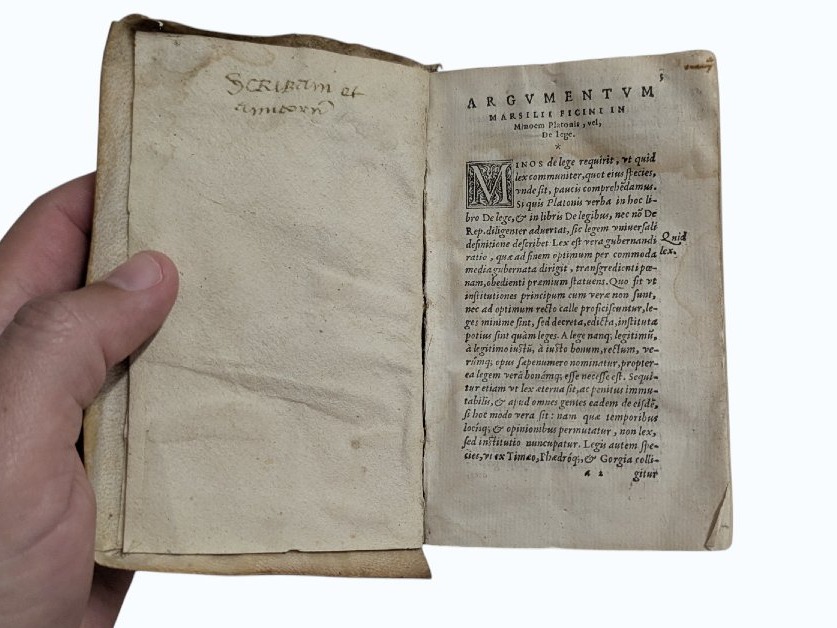 SCRIBAM et
3
ARGVMENTVM
MARSILII FICINI IN
Minoem Platonis, vel,
De lege.
*
MINOS de lege requirit, vt quid
lex communiter, quot eius species,
vnde sit, paucis comprehēdamus.
Si quis Platonis verba in hoc li-
bro De lege, & in libris De legibus, nec nō De
Rep. diligenter aduertat, sic legem vniuersali
definitione describet Lex est vera gubernandi
ratio, quæ ad finem optimum per commoda
media gubernata dirigit, transgredienti pœ-
nam, obedienti præmium statuens. Quo fit vt
institutiones principum cum veræ non sunt,
nec ad optimum recto calle proficiscuntur, le-
ges minime sint, sed decreta, edicta, instituta
potius sint quàm leges. A lege nanq; legitimū,
à legitimo iustū, à iusto bonum, rectum, ve-
rūmq; opus sæpenumero nominatur, propter-
ea legem verā bonāmq; esse necesse est. Sequi-
tur etiam vt lex æterna sit, ac penitus immu-
tabilis, & apud omnes gentes eadem de eisdē,
si hoc modo vera sit: nam quæ temporibus
locisq; & opinionibus permutatur, non lex,
sed institutio nuncupatur. Legis autem spe-
cies, vt ex Timæo, Phædróq;, & Gorgia colli-
a 2 gitur
Quid
lex.